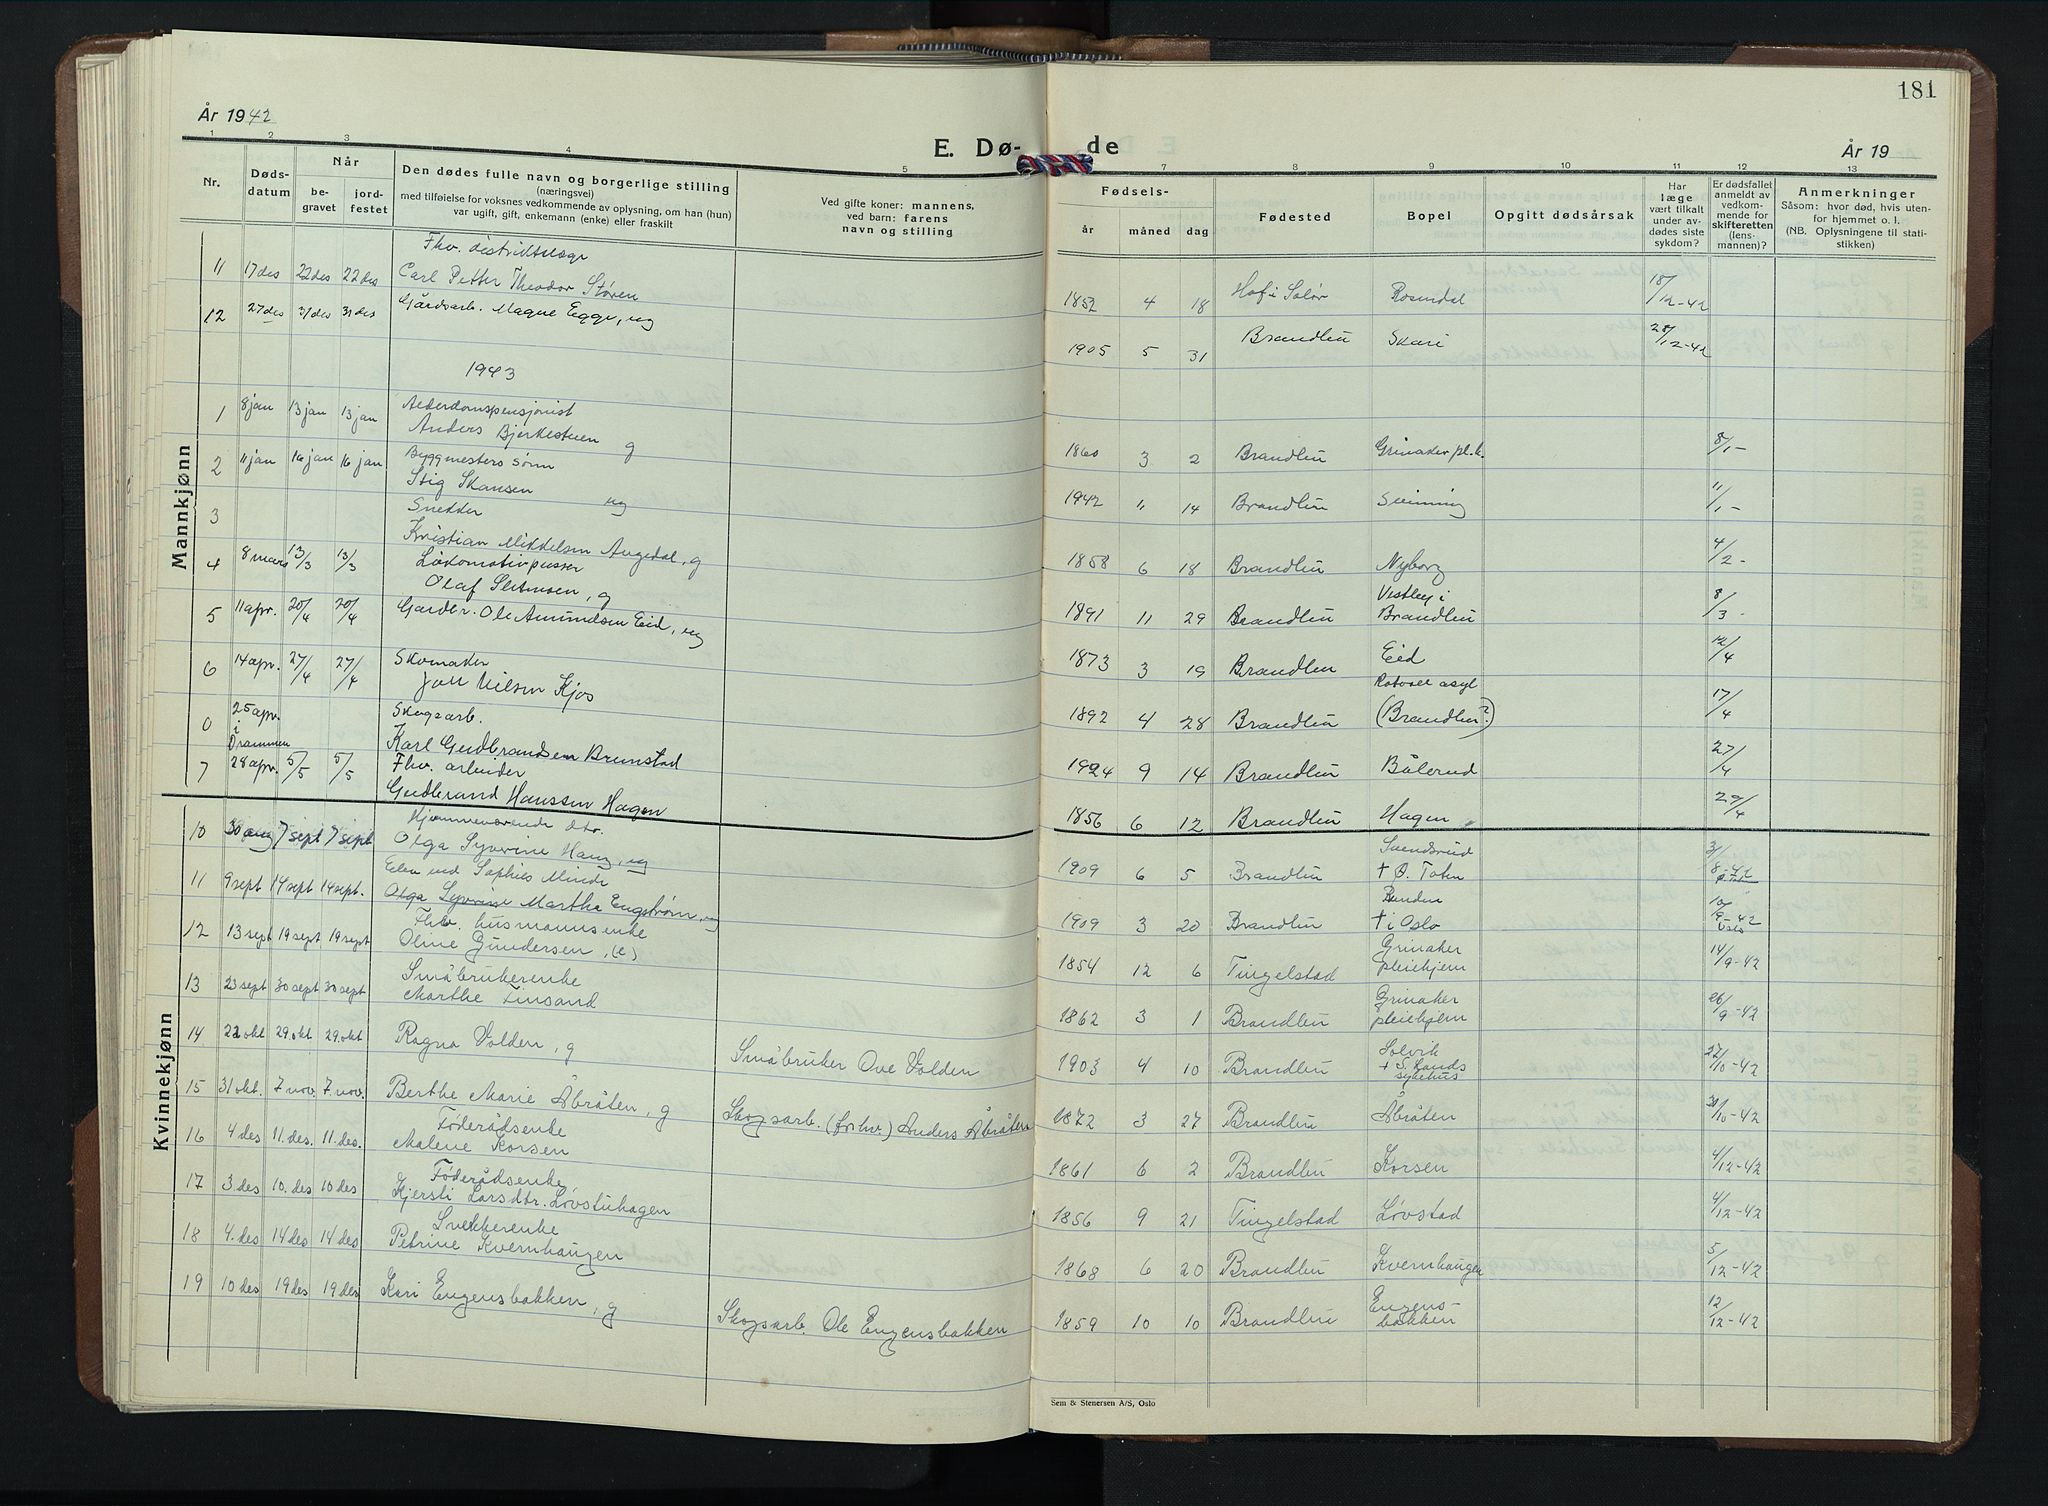 181
År 1942
E. Dø-
de
År 19
1 2 3 4 5 7 8 9 10 11 12 13
Nr.
Døds-
datum
Når
be-
gravet
jord-
festet
Den dødes fulle navn og borgerlige stilling
(næringsvei)
med tilføielse for voksnes vedkommende av oplysning, om han (hun)
var ugift, gift, enkemann (enke) eller fraskilt
Ved gifte koner: mannens,
ved barn: farens
navn og stilling
Fødsels-
år måned dag
Fødested
Bopel
Opgitt dødsårsak
Har
læge
vært tilkalt
under av-
dødes siste
sykdom?
Er dødsfallet
anmeldt av
vedkom-
mende for
skifteretten
(lens-
mannen)?
Anmerkninger
Såsom: hvor død, hvis uten-
for hjemmet o. l.
(NB. Oplysningene til stati-
stikken)
Mannkjønn
Fhv. distriktslæge
11 17 des 22 des 22 des Carl Petter Theodor Støren 1852 4 18 Hof i Solør Rosendal 18/12-42
12 27 des 31 des 31 des Gårdsarb. Magne Egge, ug 1905 5 31 Brandbu Skari 28/12-42
1943
1 8 jan 13 jan 13 jan Alderdomspensjonist
Anders Bjerkestuen g 1860 3 2 Brandbu Grinaker pl.h. 8/1-
2 11 jan 16 jan 16 jan Byggmesters sønn
Stig Skansen ug 1942 11 14 Brandbu 11/1-
3 Snekker
Kristian Mikkelsen Augedal, g 1858 6 18 Brandbu Nyborg 4/2-
4 8 mars 13/3 13/3 Lokomotivpusser
Olaf g 1891 11 29 Brandbu Vestby i Brandbu 8/3-
5 11 apr. 20/4 20/4 Gardbr. Ole Amundsen Eid, ug 1873 3 19 Brandbu Eid 12/4
6 14 apr. 27/4 27/4 Skomaker
Nilsen Kjos 1892 4 28 Brandbu asyl (Brandbu?) 17/4
0 25 apr. i Drammen Skogsarb.
Karl Gudbrandsen Brunstad 1924 9 14 Brandbu Bålerud 27/4
7 28 apr. 5/5 5/5 Fhv. arbeider
Gudbrand Hanssen Hagen 1856 6 12 Brandbu Hagen 29/4
Kvinnekjønn
10 30 aug 7 sept 7 sept Hjemmeværende dtr.
Olga Syverine Haug, ug 1909 6 5 Brandbu Svendsrud + Ø. Toten 31/8-42
11 9 sept 14 sept 14 sept. Elev ved Sophies Minde
Olga Syvrine Martha Engstrøm, ug 1909 3 20 Brandbu + i Oslo 10/9-42 Oslo
12 13 sept 19 sept 19 sept Fhv. husmannsenke
Oline Gundersen, (e) 1854 12 6 Tingelstad Grinaker pleiehjem 14/9-42
13 23 sept 30 sept 30 sept Småbrukerenke
Marthe Finsand 1862 3 1 Brandbu Grinaker pleiehjem 26/9-42
14 22 okt 29. okt 29. okt Ragna Volden, g Småbruker Ove Volden 1903 4 10 Brandbu Solvik + S. Lands sykehus 27/10-42
15 31 okt. 7 nov. 7 nov. Berthe Marie Åbråten, g Skogsarb. (forhv.) Anders Åbråten 1872 3 27 Brandbu Åbråten 30/10-42
16 4 des 11. des. 11. des. Føderådsenke
Malene Korsen 1861 6 2 Brandbu Korsen 4/12-42
17 3. des 10. des 10 des Føderådsenke
Kjersti Larsdtr. Løvstuhagen 1856 9 21 Tingelstad Løvstad 4/12-42
18 4. des 14 des 14 des Snekkerenke
Petrine Kvernhaugen 1868 6 20 Brandbu Kvernhaugen 5/12-42
19 10 des 19 des 19 des Kari Engensbakken, g Skogsarb. Ole Engensbakken 1859 10 10 Brandbu Engens-bakken 12/12-42
Sem & Stenersen A/S, Oslo